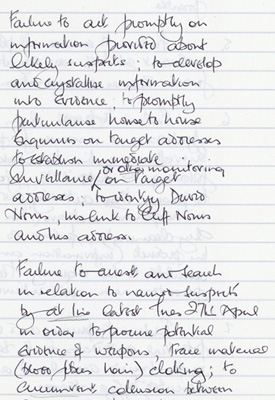 Failure to act promptly on
information provided about
likely suspects; to develop
and crystallise information
into evidence; to promptly
particularise house to house
Enquiries on target addresses
to establish immediate
surveillance, or other monitoring
on target
addresses; to identify David
Norris, his link to Cliff Norris
and his address.
Failure to arrest and search
in relation to named suspects
by at the latest Tues 27th April
in order to procure potential
evidence of weapons, trace material
(blood fibres hair) clothing; to
circumvent collusion between